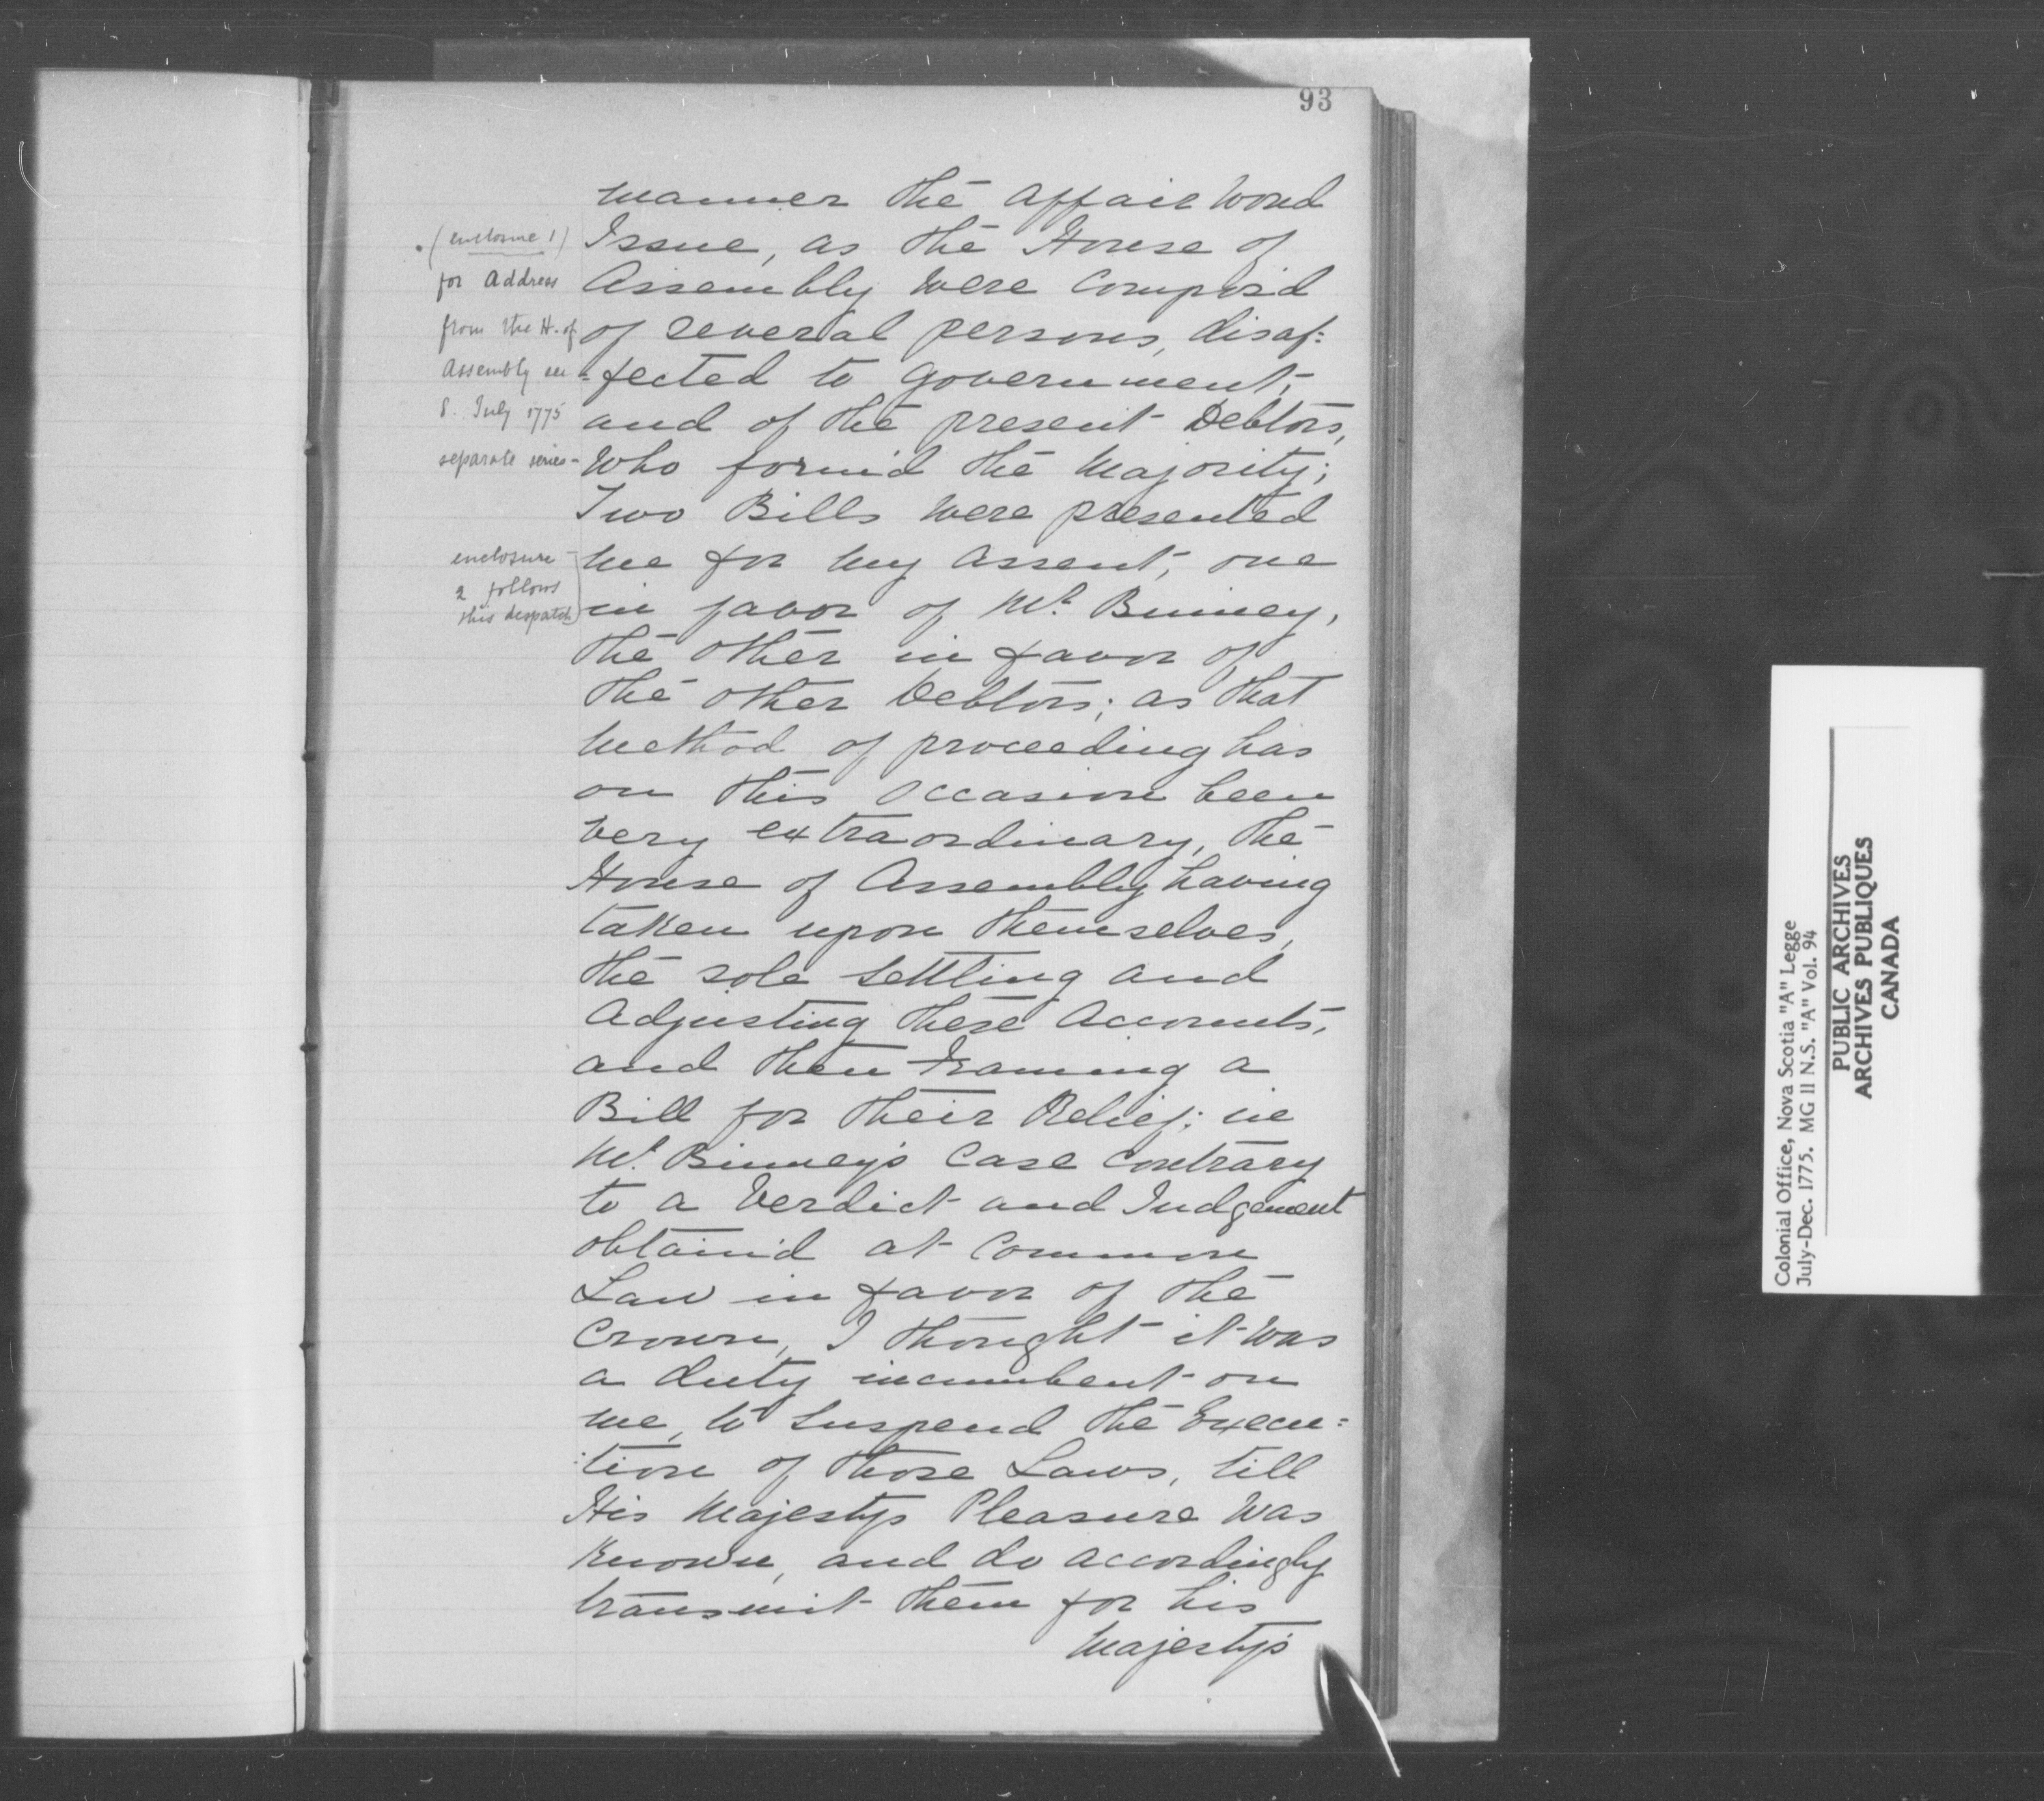 93
manner the affair woud
Issue, as the House of
Assembly were compos'd
of several persons, disaf=
=fected to government,
and of the present Debtors,
who form'd the Majority;
Two Bills were presented
me for my assent, one
in favor of Mr. Binney,
the other in favor of
the other Debtors; as that
method of proceeding has
on this occasion been
very extraordinary, the
House of Assembly having
taken upon themselves,
the sole settling and
Adjusting these Accounts,
and then framing a
Bill for their Relief; in
Mr. Binney's Case contrary
to a Verdict and Judgement
obtain'd at Common
Law in favor of the
Crown, I thought it was
a duty incumbent on
me, to suspend the Execu=
=tion of those Laws, till
His Majestys Pleasure was
known, and do accordingly
transmit them for his
Majesty's
(enclosure 1)
for Address
from the H. of
Assembly see
8. July 1775
separate series
enclosure
2 follows
this despatch
Colonial Office, Nova Scotia "A" Legge
July-Dec. 1775. MG 11 N.S. "A" Vol. 94
PUBLIC ARCHIVES
ARCHIVES PUBLIQUES
CANADA